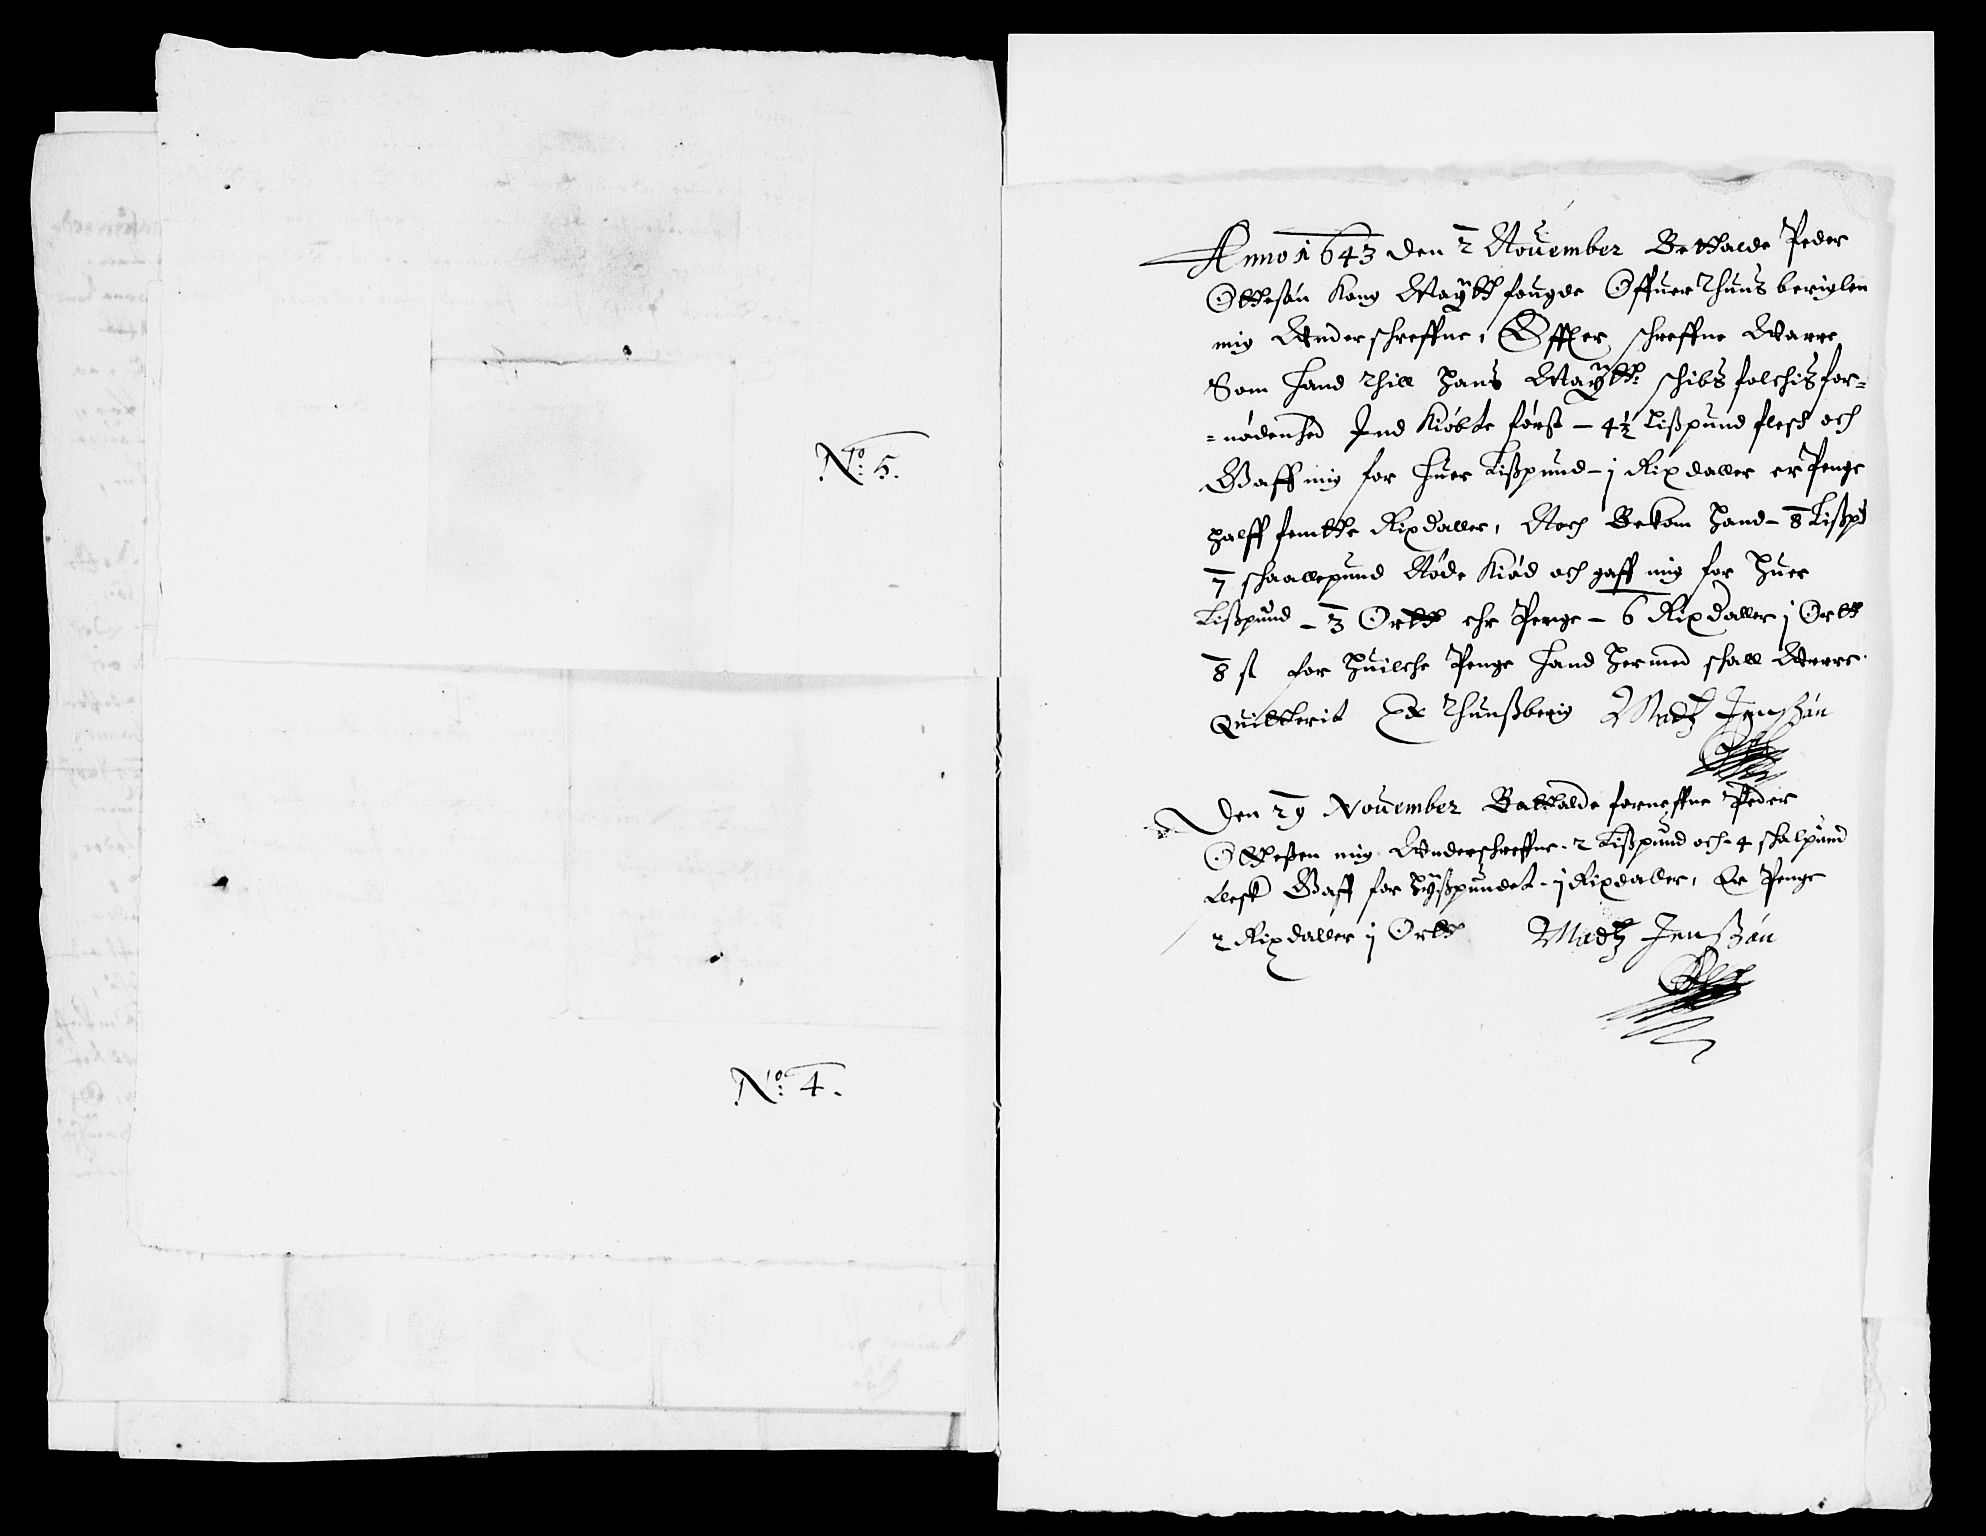 No: 5.
No: 4.
Anno 1643 den 2 Nouember Betthalde Peder
Ottesøn Kong Maytt fougde Offuer Thuns
mig Underschreffne, Effter schreffne Warre
Som hand Thill Hans Maytt: schibs folchis for=
=nødenhed Ind Kiøbte først - 4½ Lißpund flesch och
Gaff mig for huer Lißpund - j Rixdaller er Penge
halff femtte Rixdaller, Noch Bekom hand - 8 Lißpd
7 schaallepund Nøde Kiød och gaff mig for huer
Lißpund - 3 Ortt ehr Penge - 6 Rixdaller j Ortt
8 ß for huilche Penge hand hermed schall Werre
Quitterit Thunßberig Madtz Jenßøn
Den 29 Nouember Battalde forneffne Peder
Otteßen mig Underschreffne - 2 Lißpund och 4 skalpund
Gaff for Lyßpundet - j Rixdaller, Er Penge
2 Rixdaller j Ortt Madtz Jenßøn